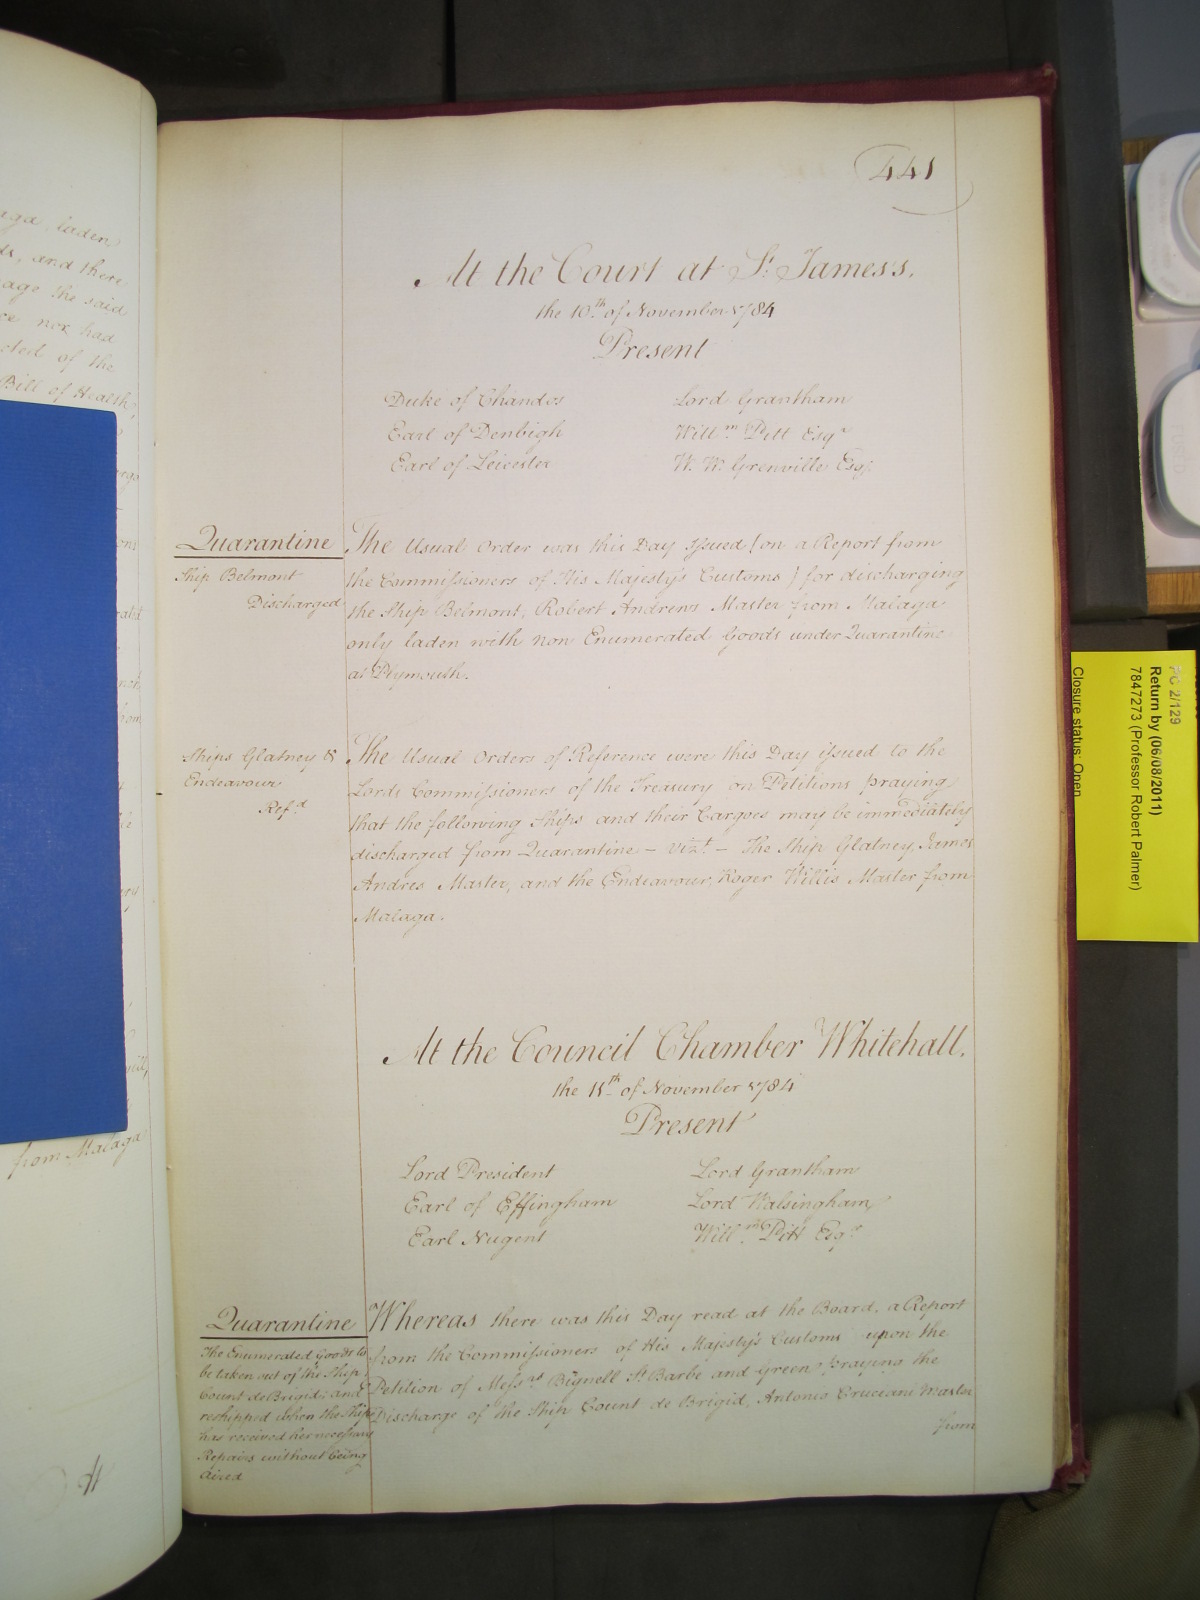 441
At the Court at St. James's.
the 10th of November 1784
Present
Duke of Chandos
Earl of Denbigh
Earl of Leicester
Lord Grantham
Willm Pitt Esqr
W. W. Grenville Esqr
Quarantine
Ship Belmont
Discharged
The Usual Order was this Day Issued (on a Report from
the Commissioners of His Majesty's Customs) for discharging
the Ship Belmont, Robert Andrews Master from Malaga
only laden with non Enumerated Goods under Quarantine
at Plymouth.
Ships Glatney &
Endeavour
Refd
The Usual Orders of Reference were this Day issued to the
Lords Commissioners of the Treasury on Petitions praying
that the following Ships and their Cargoes may be immediately
discharged from Quarantine – vizt – The Ship Glatney, James
Andres Master, and the Endeavour, Roger Hillis Master from
Malaga.
At the Council Chamber Whitehall.
the 11th of November 1784
Present
Lord President
Earl of Effingham
Earl Nugent
Lord Grantham
Lord Walsingham
Willm Pitt Esqr
Quarantine
The Enumerated Goods to
be taken out of the Ship
Count de Brigid; and
reshipped when the Ship
has received her necessary
Repairs without being
aired
Whereas there was this Day read at the Board, a Report
from the Commissioners of His Majesty's Customs upon the
Petition of Messrs Bignell St Barbe and Green praying the
Discharge of the Ship Count de Brigid, Antonio Cruciani Master
from
aga laden
ds, and there
age the said
ce nor had
cted of the
Bill of Health,
from Malaga
PC 2/129
Return by (06/08/2011)
7847273 (Professor Robert Palmer)
Closure status: Open